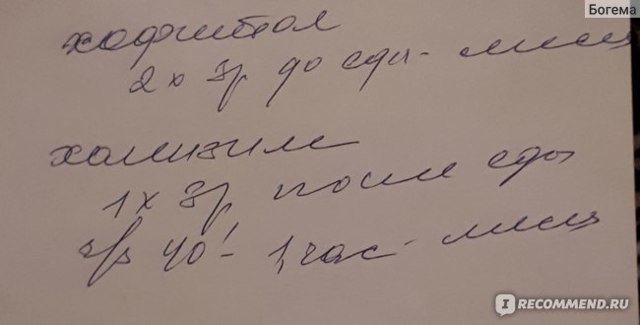 Богема
хофитол
2 х 3р до еды - месяц
холизим
1 х 3р после еды
чрз 40' - 1 час - месяц
I RECOMMEND.RU